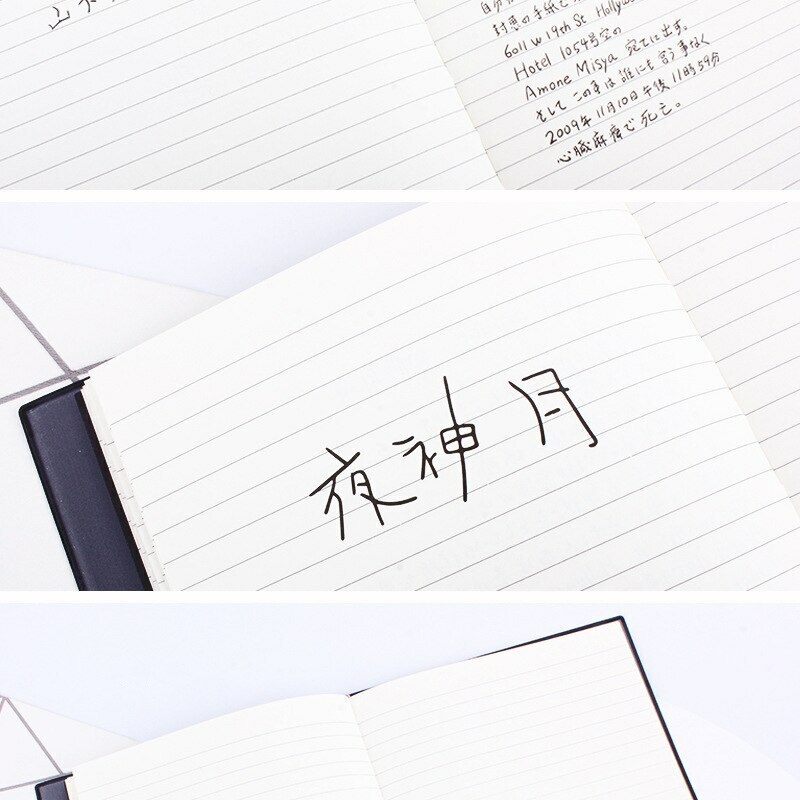 自分
封悪の手紙で
6011 w 19th St Hollyw
Hotel 1054号室の
Amone Misya 宛てに出す。
そして この事は誰にも言う事なく
2009年11月10日午後11時59分
心臓麻痺で死亡。
夜神月